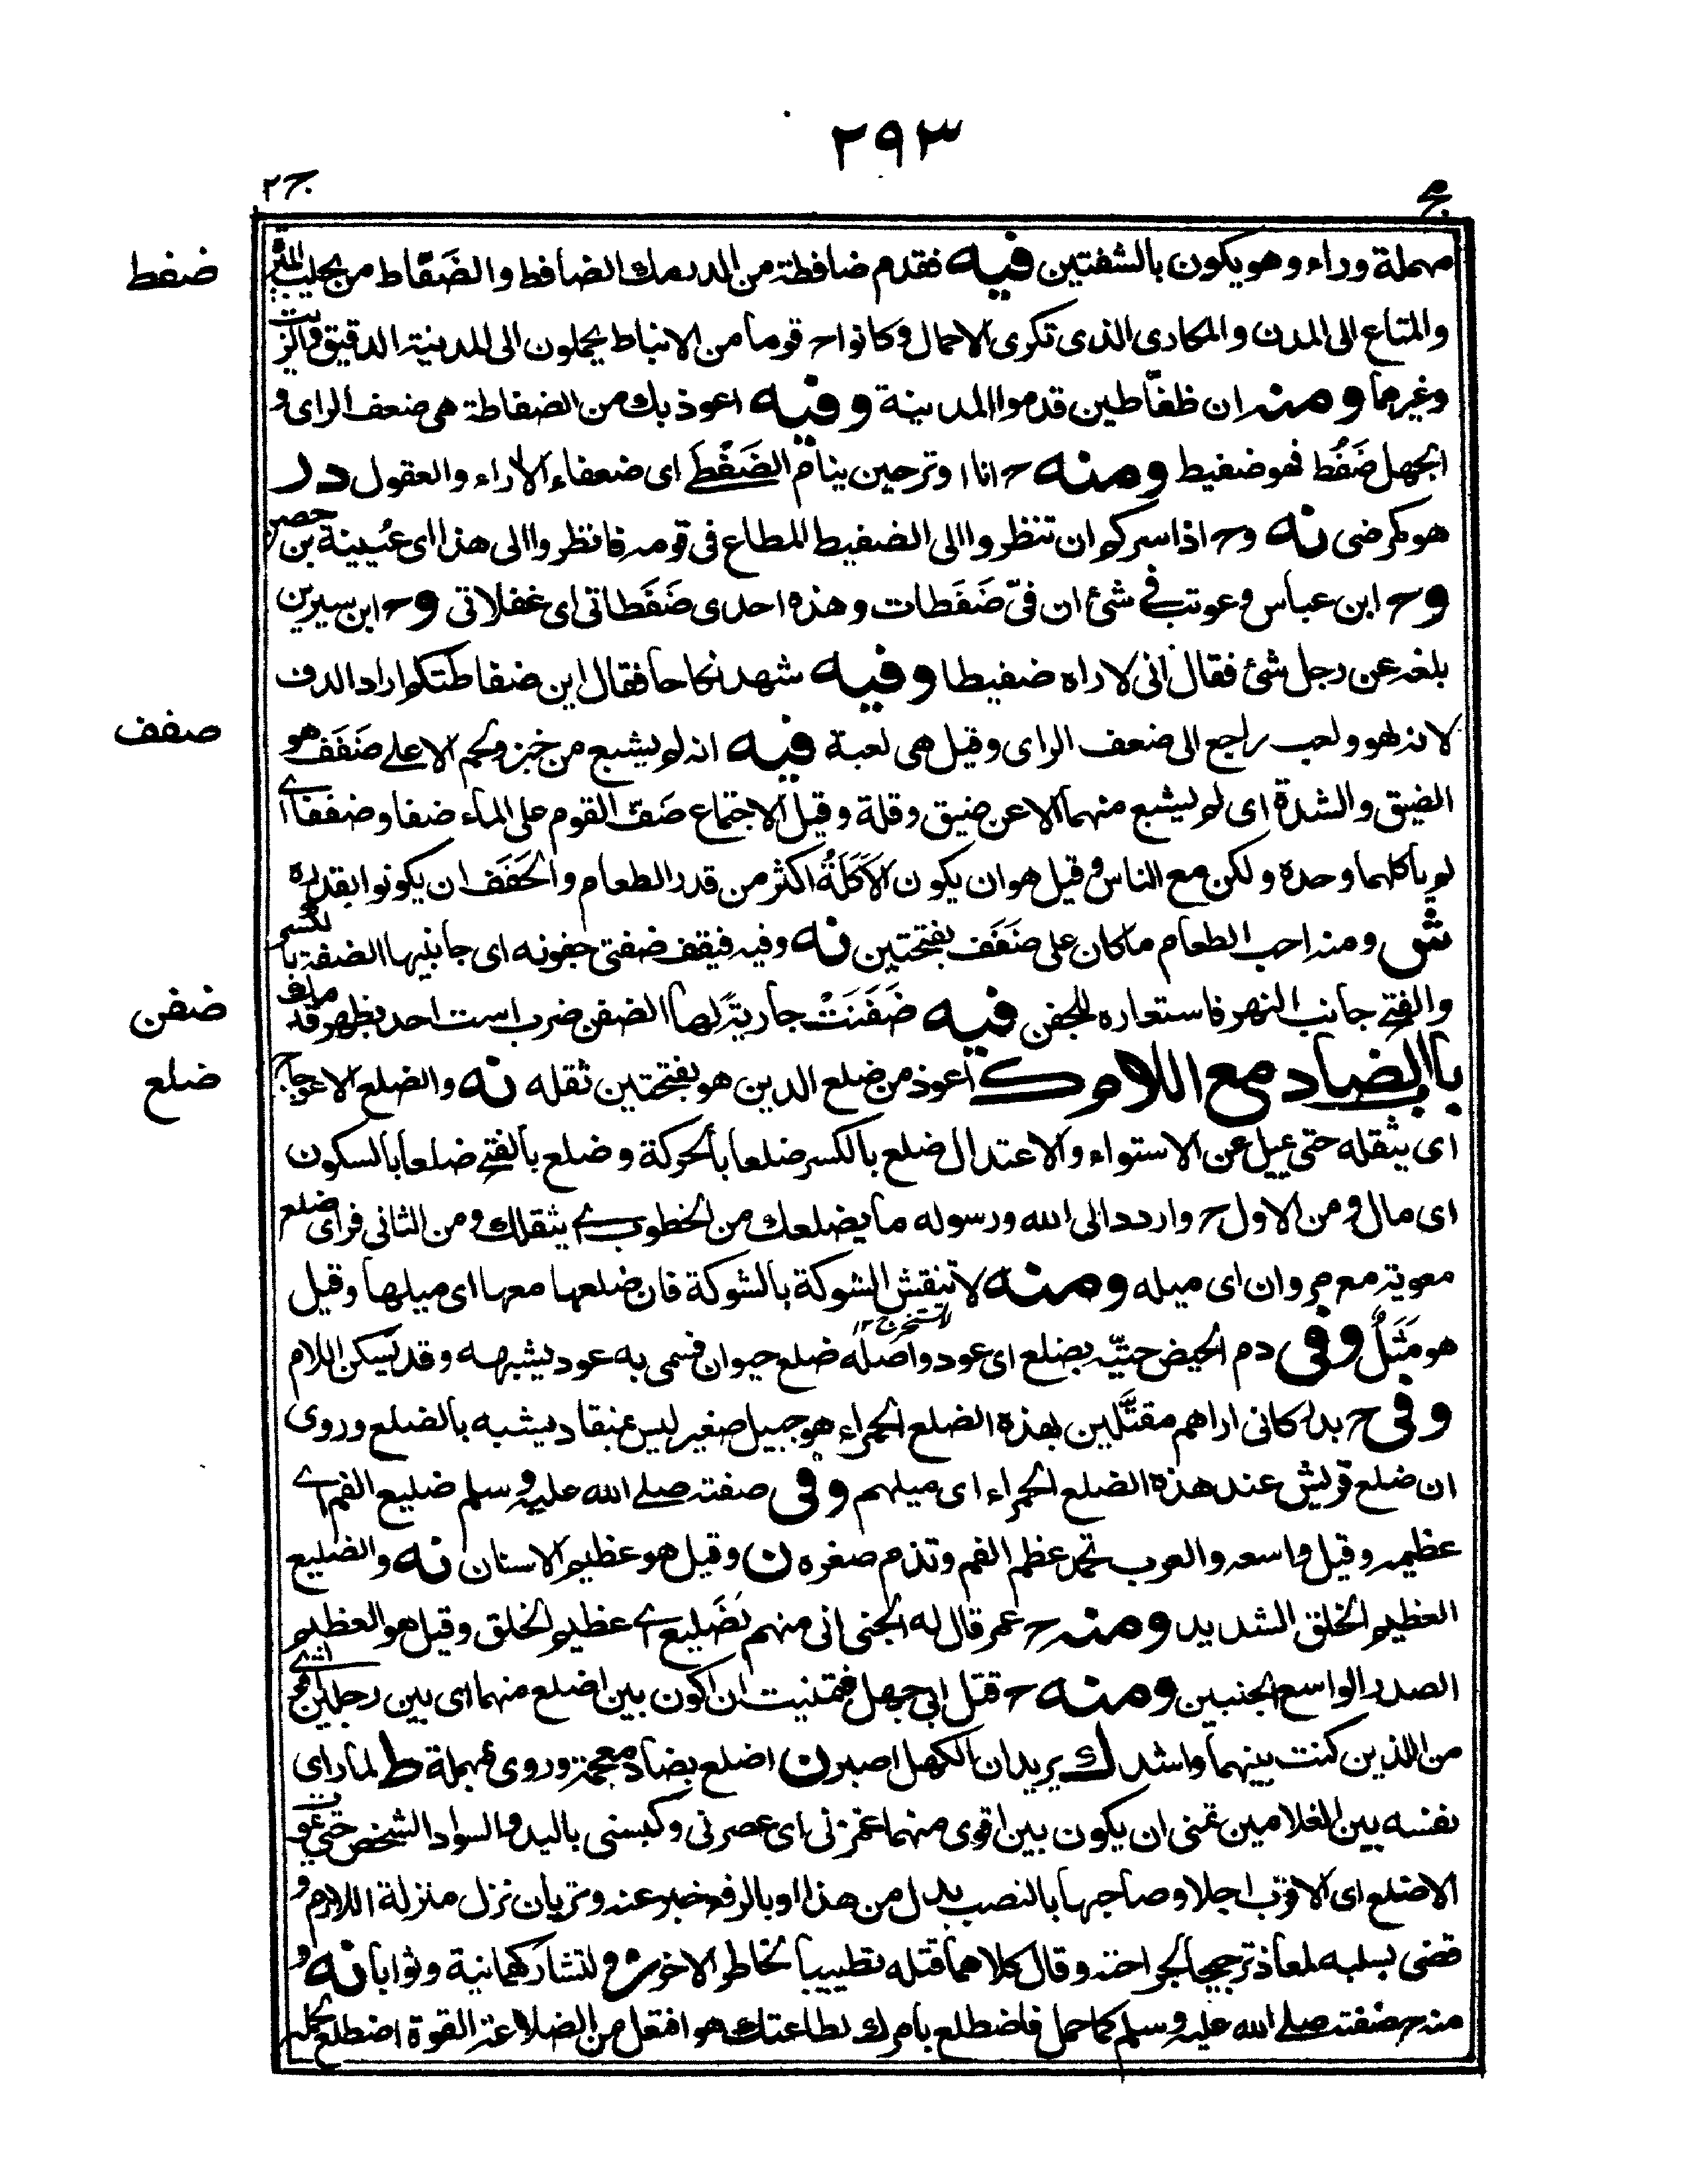 ٢٩٣
ج٢
مج
ضفط
مهملة وراء وهو يكون بالشفتين فيه فقدم ضافطة من الدرمك الضافط والضَفّاط من يجلب المِيَر
والمتاع الى المدن والمكارى الذى تكرى الاحمال وكانوا ح قوما من الانباط يحملون الى المدينة الدقيق والزيت
وغيرهما ومنه ان ظفّاطين قدموا المدينة وفيه اعوذ بك من الضفاطة هى ضعف الراى و
الجهل ضَفُط فهو ضفيط ومنه ح انا اوتر حين ينام الضَفْطى اى ضعفاء الاراء والعقول در
هو كمرضى نه وح اذا سركم ان تنظروا الى الضفيط المطاع فى قومه فانظروا الى هذا اى عُيينة بن حصن
وح ابن عباس وعوتب فى شئ ان فىّ ضَفَطات وهذه احدى ضَفَطاتى اى غفلاتى وح ابن سيرين
بلغه عن رجل شئ فقال انى لاراه ضفيطا وفيه شهد نكاحا فقال اين ضفاطتكم اراد الدف
صفف
لانه لهو ولعب راجع الى ضعف الراى وقيل هى لعبة فيه انه لم يشبع من خبز ولحم الا على ضَفَف هو
الضيق والشدة اى لم يشبع منهما الا عن ضيق وقلة وقيل الاجتماع ضَفّ القوم على الماء ضفا وضففا اى
لم ياكلهما وحده ولكن مع الناس وقيل هو ان يكون الاَكَلَةُ اكثر من قدر الطعام والحَفَف ان يكونوا بقدره
ش ومنه احب الطعام ما كان على ضَفَف بفتحتين نه وفيه فيقف ضفتى جفونه اى جانبيها الضفة بالكسر
ضفن
والفتح جانب النهر فاستعاره للجفن فيه ضَفَنَتْ جارية لها الضفن ضرب است احد بظهر قدمك
ضلع
باب الضاد مع اللام ك اعوذ من ضلع الدين هو بفتحتين ثقله نه والضلع الاعوجاج
اى يثقله حتى يميل عن الاستواء والاعتدال ضلع بالكسر ضلعا بالحركة وضلع بالفتح ضلعا بالسكون
اى مال ومن الاول ح واردد الى الله ورسوله ما يضلعك من الخطوب اى يثقلك ومن الثانى فراى ضلع
معوية مع مروان اى ميله ومنه لا تنقش الشوكة بالشوكة فان ضلعها معها اى ميلها وقيل
لا تستخرج ١٢
هو مَثَلٌ وفى دم الحيض حتيّه بضلع اى عود واصله ضلع حيوان فسمى به عود يشبهه وقد تسكن اللام
وفى ح بدر كانى اراهم مقتَّلين بهذه الضلع الحمراء هو جبيل صغير ليس بمنقاد يشبه بالضلع وروى
ان ضلع قريش عند هذه الضلع الحمراء اى ميلهم وفى صفته صلى الله عليه وسلم ضليع الفم اى
عظيمه وقيل واسعه والعرب تحمد عظم الفم وتذم صغره ن وقيل هو عظيم الاسنان نه والضليع
العظيم الخلق الشديد ومنه ح عمر قال له الجنى انى منهم لضَليع اى عظيم الخلق وقيل هو العظيم
الصدر الواسع الجنبين ومنه ح قتل ابى جهل فتمنيت ان اكون بين اضلع منهما اى بين رجلين اقوى
من اللذين كنت بينهما واشد ك يريد ان الكهل اصبر ن اضلع بضاد معجمة وروى مهملة ط لما راى
نفسه بين الغلامين تمنى ان يكون بين اقوى منهما غمزنى اى عصرنى وكبسنى باليد والسواد الشخص حتى يموت
الاضلع اى الاقرب اجلا وصاحبها بالنصب بدل من هذا او بالرفع خبر عنه وتريان نزل منزلة اللازم و
قضى بسلبه لمعاذ ترجيحا لجراحته وقال كلاهما قتله تطييبا لخاطر الاخر ش ولتشاركهما نية وثوابا نه و
منه ح صفته صلى الله عليه وسلم كما حمل فاضطلع بامرك لطاعتك هو افتعل من الضلاعة القوة اضطلع بحمله